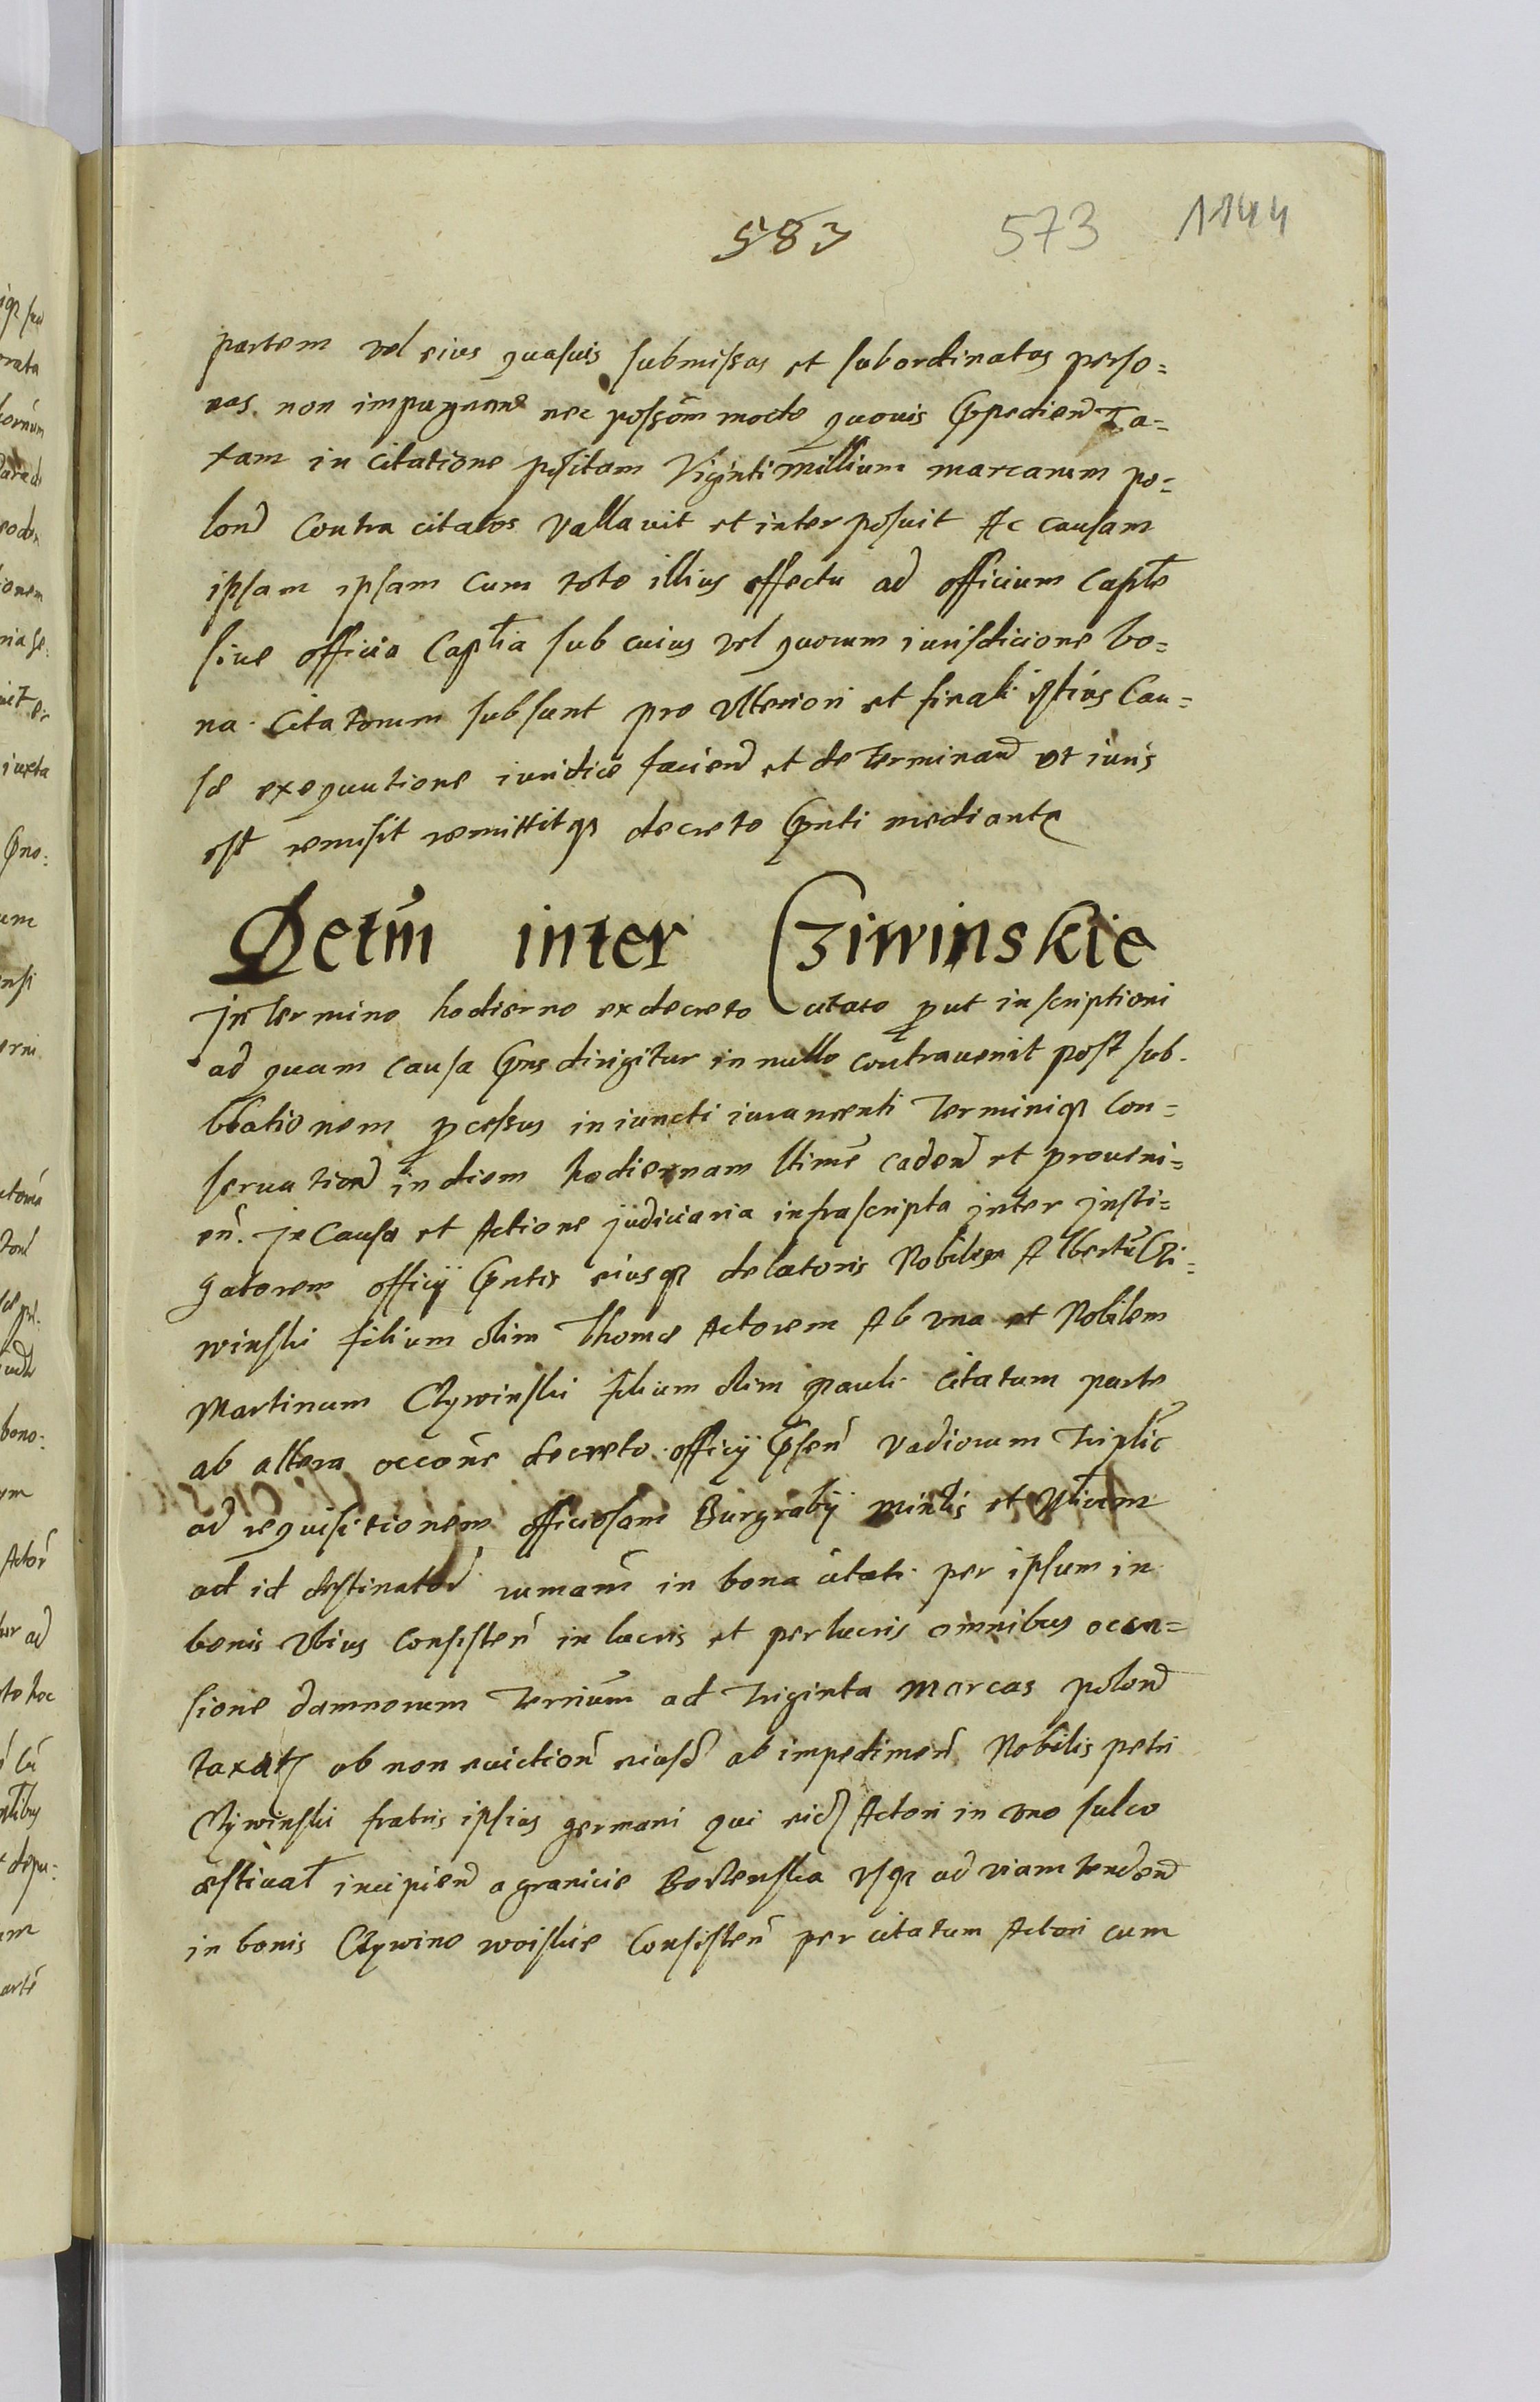 583 573 1144
partem vel eius quasuis submissas et subordinatas perso=
nas non impugnand nec possom modo quouis Impediend Ta=
xam in citatione positam Viginti millium marcarum po=
lond Contra citatos vallauit et interposuit Ac causam
ipsam ipsam cum toto illius effectu ad officium Capte
siue officia Captia sub cuius vel quorum iurisdicione bo=
na citatorum subsunt pro vlteriori et finali istius Cau=
sae exequutione iuridice faciend et determinand vt iuris
est remisit remittitq decreto pnti mediante
Detum inter Cziwinskie
In Termino hodierno ex decreto citato put inscriptioni
ad quam causa pns dirigitur in nullo contrauenit post sub
lationem pcessus iniuncti iuramenti Terminiq Con=
seruation in diem hodiernam ltime cadend et proueni=
en. In Causa et Actione judiciaria infrascripta inter insti=
gatorem officij pntis eiusq delatoris Nobilem Albertu Czi=
winski filium olim Thomae Actorem Ab vna et Nobilem
Martinum Czywinski filium olim pauli citatum parte
ab altera occone decreto officij psen vadiorum Triplic
ad requisitionem officiosam Burgrabij minlis et Nlium
ad id destinator rumam in bona citati per ipsum in
bonis Vbius Consisten in lucris et perlucris omnibus occa=
sione damnorum Terrium ad Triginta marcas polond
taxat ob non euiction eiusd ab impedimen Nobilis petri
Czywinski fratris ipsius germani qui eid Actori in vno sulco
aestiuat incipiend a granicie Borzenska vsq ad viam tendend
in bonis Czywino woiskie Consisten per citatum Actori cum